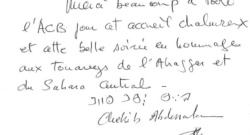 Merci beaucoup à votre
l'ACB pour cet accueil chaleureux
et cette belle soirée en hommage
aux touaregs de l'Ahaggar et
du Sahara Central -
Chekib Abdessalam